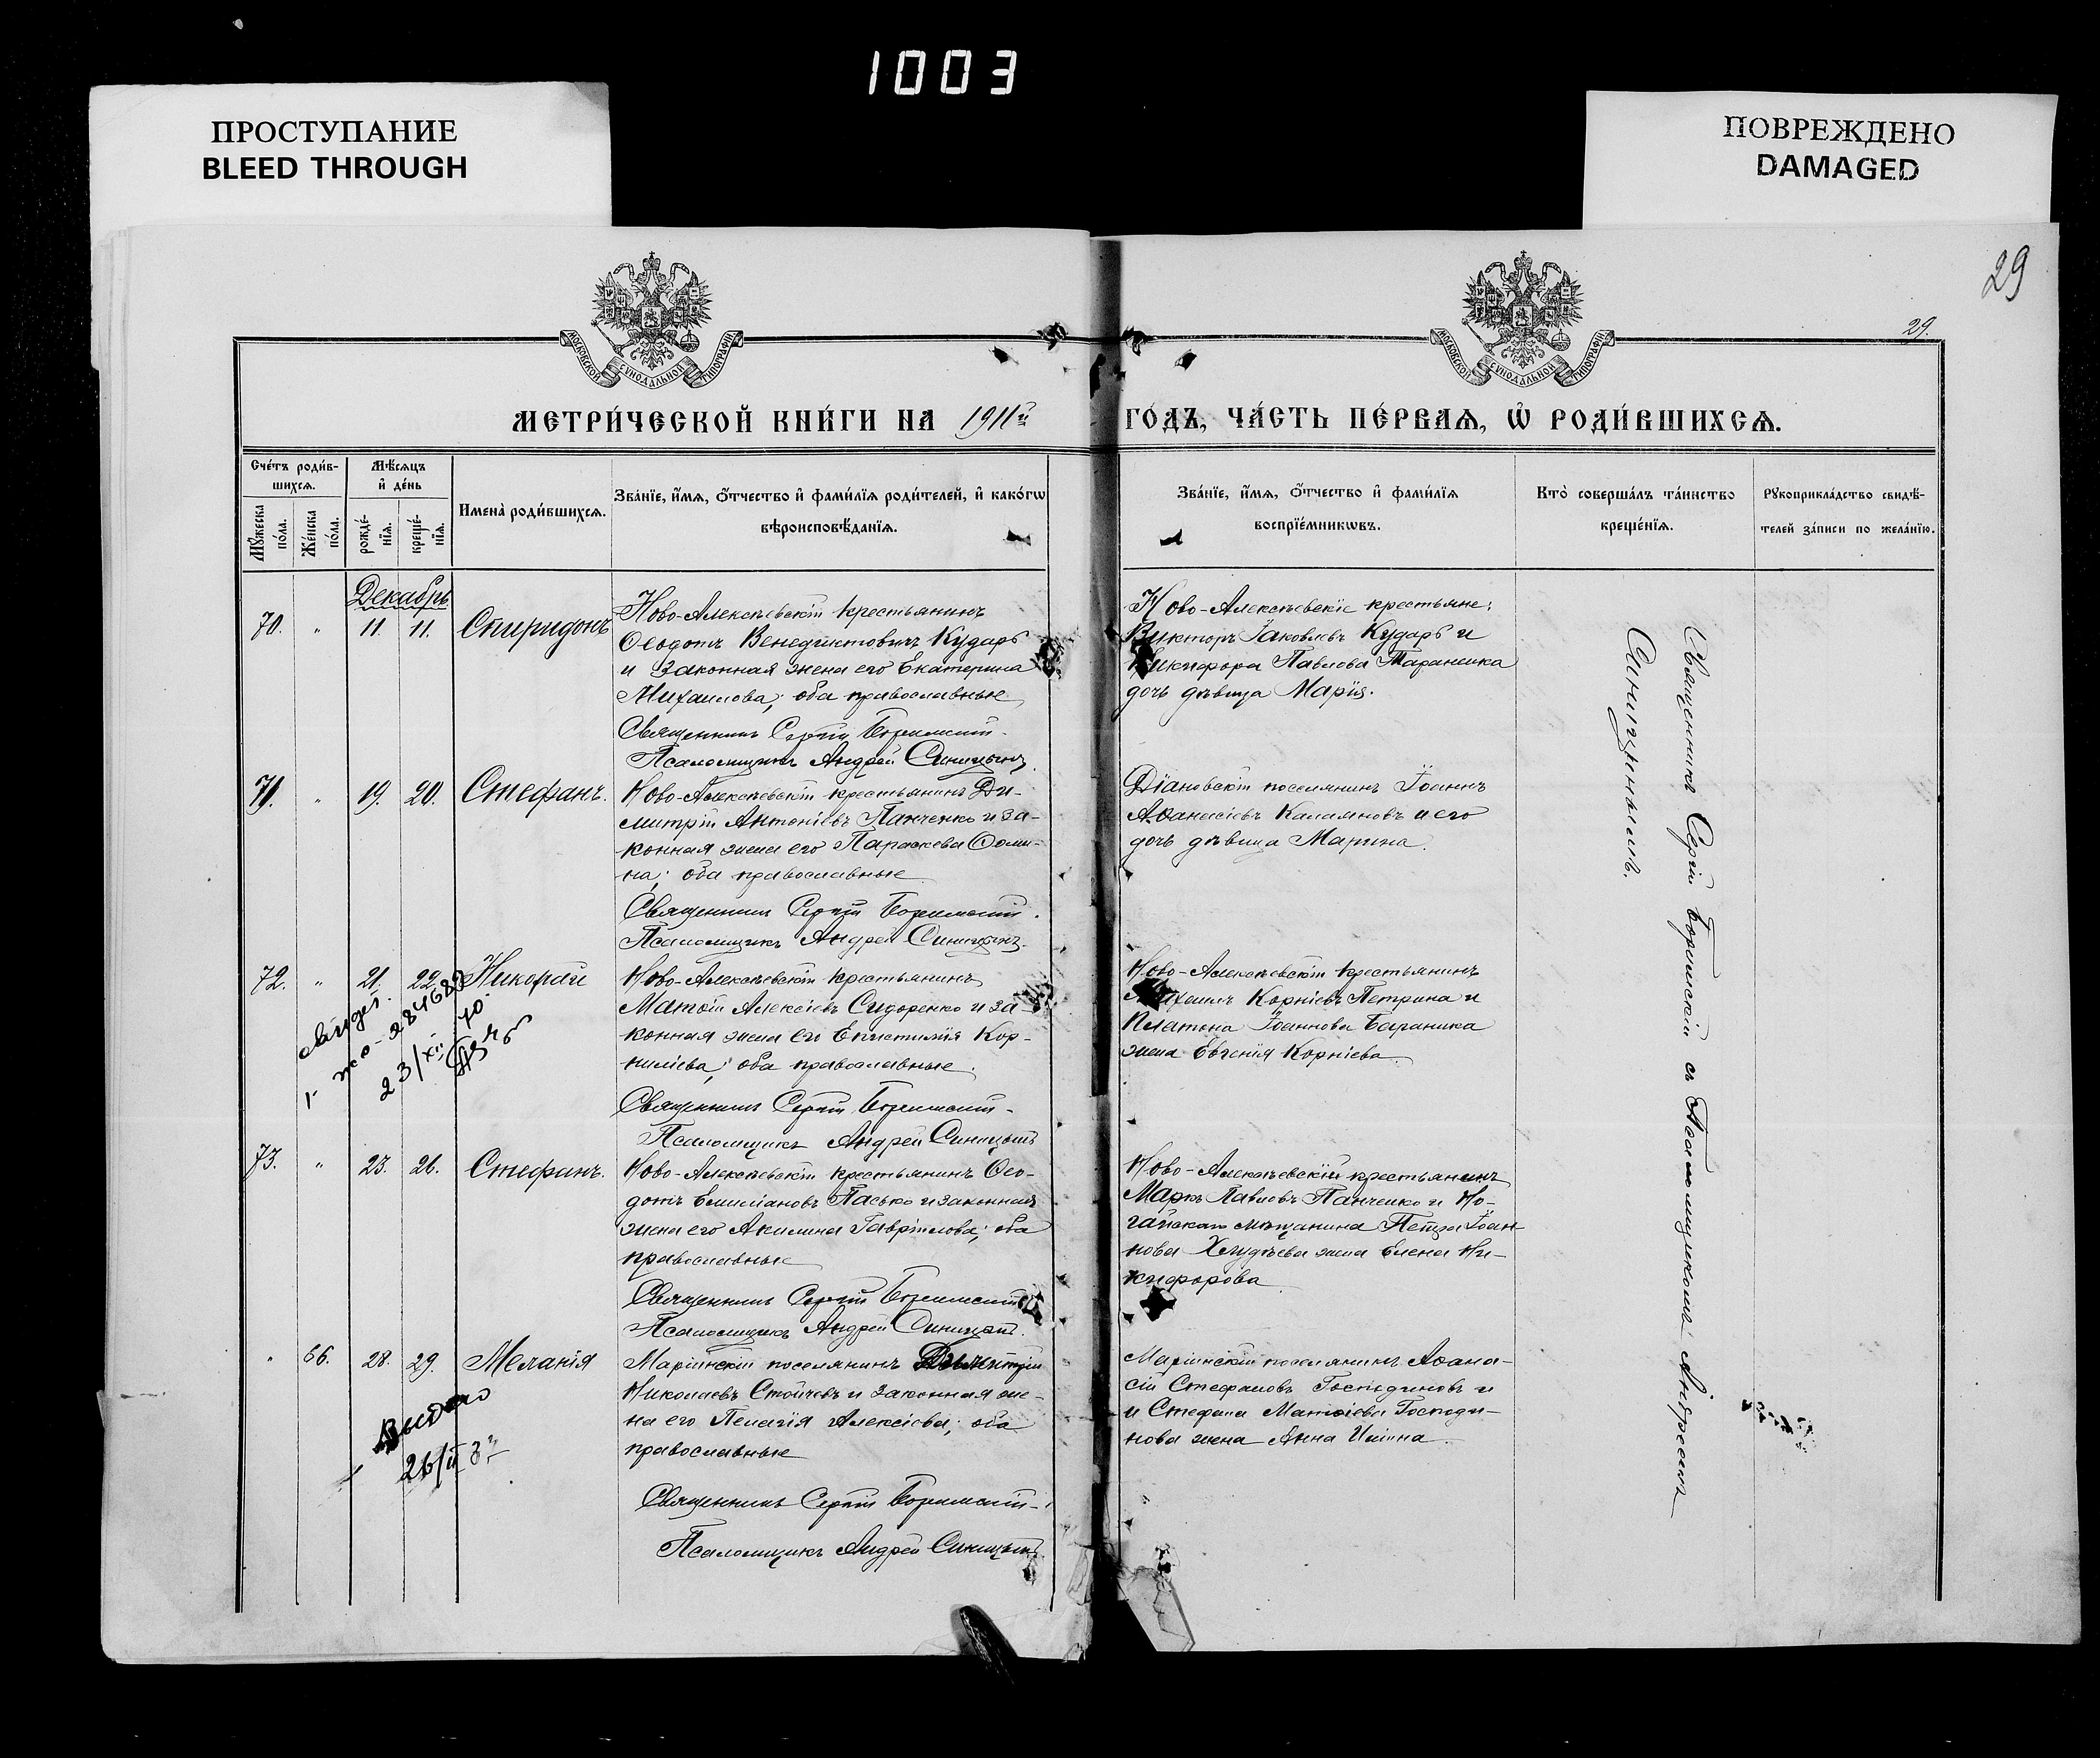 1003
ПРОСТУПАНИЕ
BLEED THROUGH
ПОВРЕЖДЕНО
DAMAGED
29
29.
МОСКОВСКОЙ СѴНОДАЛЬНОЙ ТИПОГРАФІИ
МОСКОВСКОЙ СѴНОДАЛЬНОЙ ТИПОГРАФІИ
МЕТРИ́ЧЕСКОЙ КНИ́ГИ НА 1911й ГО́ДЪ, ЧА́СТЬ ПЕ́РВАѦ, Ѡ РОДИ́ВШИХСѦ.
Сче́тъ роди́в-
шихсѧ.
Мꙋ́жеска по́ла.
Же́нска по́ла.
Мѣ́сѧцъ
и҆ де́нь
рожде́-
нїѧ.
креще́-
нїѧ.
И҆мена̀ роди́вшихсѧ.
Зва́нїе, и҆́мѧ, о҆́тчество и҆ фами́лїѧ роди́телей, и҆ како́гѡ
вѣроисповѣ́данїѧ.
Зва́нїе, и҆́мѧ, о҆́тчество и҆ фами́лїѧ
воспрїе́мникѡвъ.
Кто̀ соверша́лъ та́инство
креще́нїѧ.
Рꙋкоприкла́дство свидѣ́-
телей за́писи по жела́нїю.
Декабрь
70. " 11. 11. Спиридонъ
Ново-Алексѣевскій крестьянинъ
Ѳеодотъ Венедиктовичъ Кударь
и законная жена его Екатерина
Михаилова; оба православные
Священникъ Сергій
Псаломщикъ Андрей Синицынъ
Ново-Алексѣевскіе крестьяне:
Викторъ Іаковлевъ Кударь и
Никифора Павлова Тараника
дочь дѣвица Марія.
71. " 19. 20. Стефанъ.
Ново-Алексѣевскій крестьянинъ Ди-
митрій Антоніевъ Панченко и за-
конная жена его Параскева Ѳоми-
на; оба православные
Священникъ Сергій
Псаломщикъ Андрей Синицынъ.
Діановскій поселянинъ Іоаннъ
Аѳанасіевъ Калаяновъ и его
дочь дѣвица Марина.
72. " 21. 22. Никорай
свидет.
23/XII 40.
Ново-Алексѣевскій крестьянинъ
Матѳій Алексіевъ Сидоренко и за-
конная жена его Епистимія Кор-
ниліева; оба православные.
Священникъ Сергій
Псаломщикъ Андрей Синицынъ
Ново-Алексѣевскій крестьянинъ
Михаилъ Корніевъ Петрина и
Платона Іоаннова Бараника
жена Евгенія Корніева
73. " 23. 26. Стефанъ.
Ново-Алексѣевскій крестьянинъ Ѳео-
дотъ Емиліановъ Пасько и законная
жена его Акилина Гавріилова; оба
православные
Священникъ Сергій
Псаломщикъ Андрей Синицынъ.
Ново-Алексѣевскій крестьянинъ
Маркъ Павловъ Панченко и Но-
гайскаго мѣщанина Петра Іоан-
нова жена Елена Ни-
кифорова
" 66. 28. 29. Меланія
Видано
26/II
Маріинскій поселянинъ
Николаевъ Стойчевъ и законная же-
на его Пелагія Алексіева; оба
православные
Священникъ Сергій
Псаломщикъ Андрей Синицынъ.
Маріинскій поселянинъ Аѳана-
сій Стефановъ Господиновъ и
и Стефана Матѳіева Господи-
нова жена Анна Иліина.
Священникъ Сергій съ Псаломщикомъ Андреемъ
Синицынымъ.